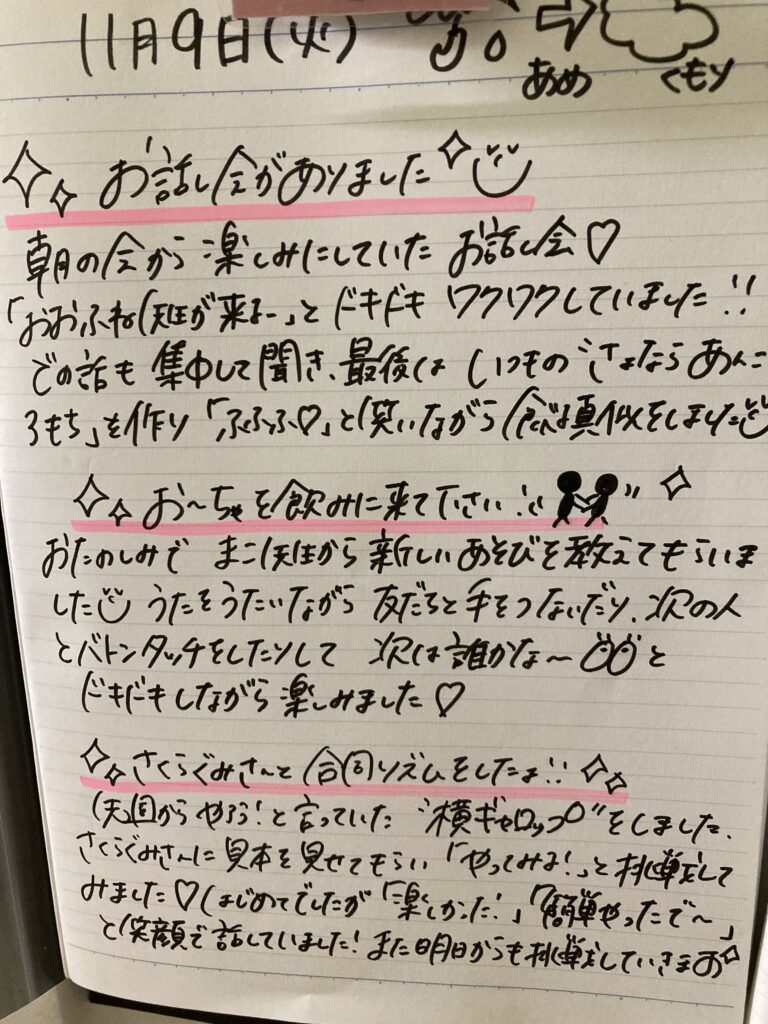 11月9日(火)
あめ くもり
お話し会がありました
朝の会から楽しみにしていた お話し会♡
「おおふね先生が来るー」と ドキドキ ワクワクしていました!!
どの話も 集中して聞き、最後は いつもの"さよなら あんこ
ろもち」を作り「ふふふ♡」と笑いながら食べる真似をしました
お〜ちゃを飲みに来て下さい!!
おたのしみで まこ先生から 新しい あそびを教えてもらいま
した うたをうたいながら 友だちと手をつないだり、次の人
とバトンタッチをしたりして 次は誰かな〜 と
ドキドキしながら楽しみました♡
さくらぐみさんと 合同リズムをしたよ!!
先週からやろう!と言っていた "横ギャロップ"をしました。
さくらぐみさんに見本を見せてもらい「やってみる!」と挑戦して
みました♡はじめてでしたが「楽しかった!」「簡単やったで〜」
と笑顔で話していました!また明日からも挑戦していきます